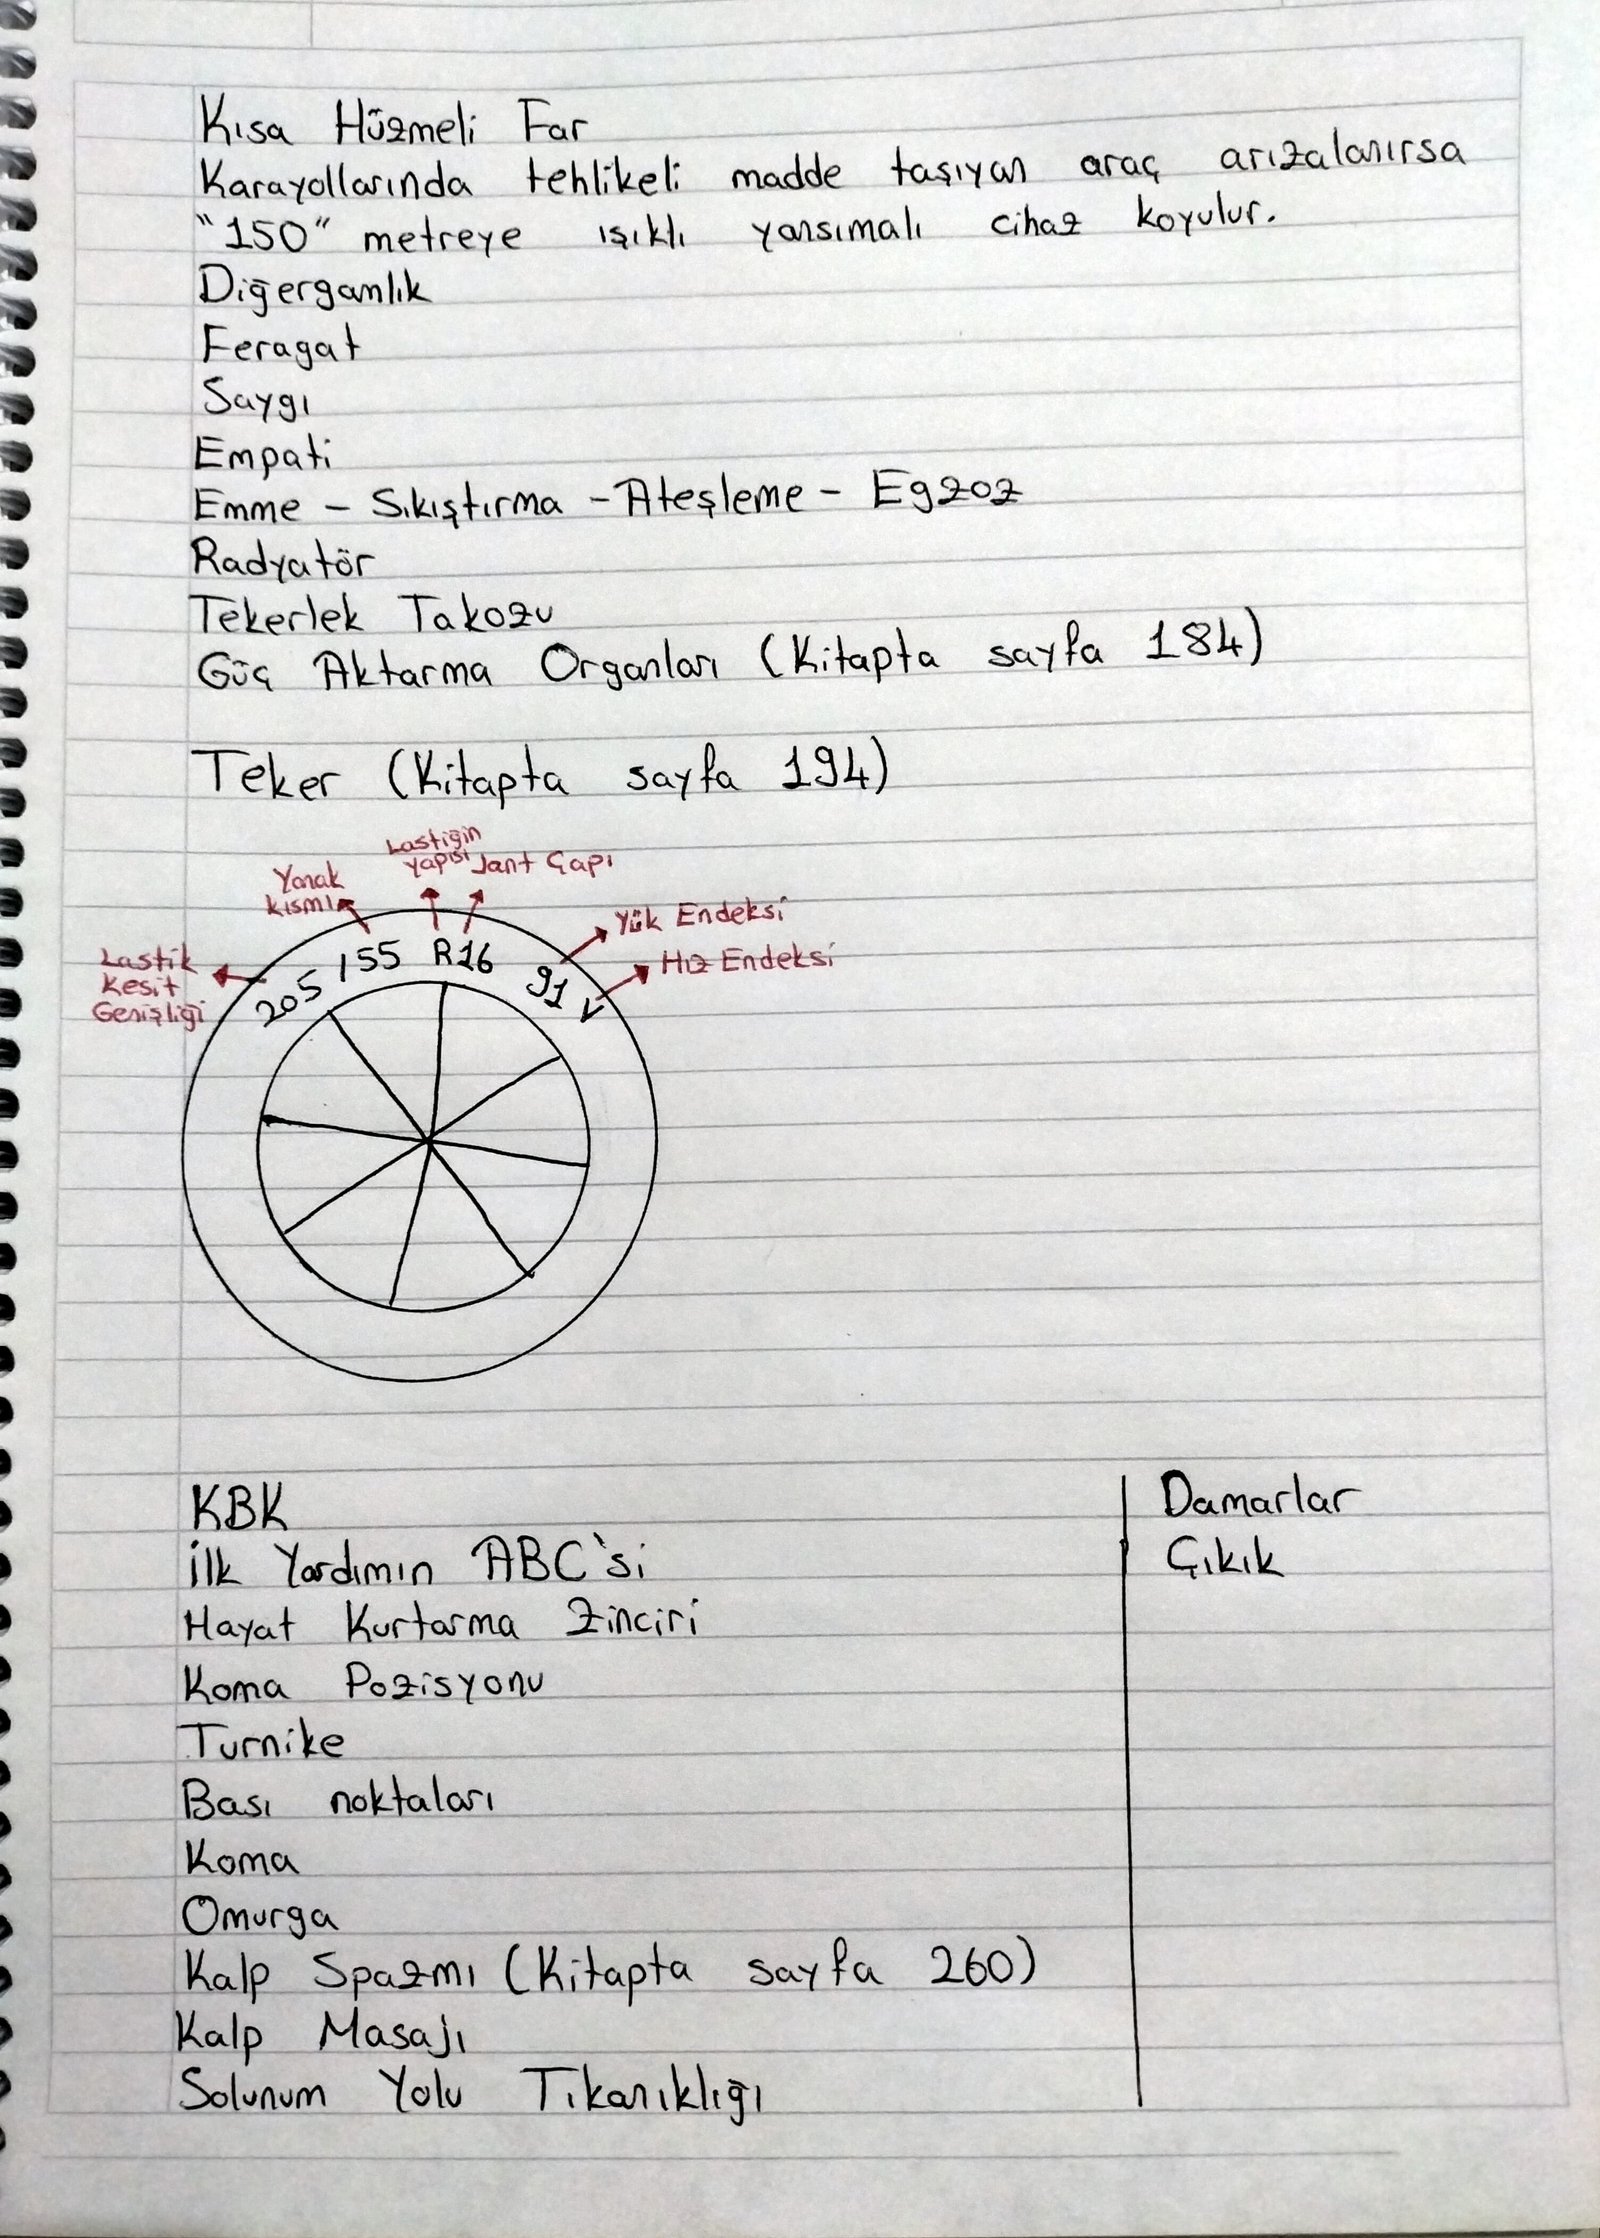 Kısa Hüzmeli Far
Karayollarında tehlikeli madde taşıyan araç arızalanırsa
"150" metreye ışıklı yansımalı cihaz koyulur.
Diğergamlık
Feragat
Saygı
Empati
Emme - Sıkıştırma - Ateşleme - Egzoz
Radyatör
Tekerlek Takozu
Güç Aktarma Organları (Kitapta sayfa 184)
Teker (Kitapta sayfa 194)
Lastik
Kesit
Genişliği
Yanak
Kısmı
Lastiğin
Yapısı
Jant Çapı
Yük Endeksi
Hız Endeksi
205 / 55 R16 91 V
KBK
İlk Yardımın ABC'si
Hayat Kurtarma Zinciri
Koma Pozisyonu
Turnike
Bası noktaları
Koma
Omurga
Kalp Spazmı (Kitapta sayfa 260)
Kalp Masajı
Solunum Yolu Tıkanıklığı
Damarlar
Çıkık